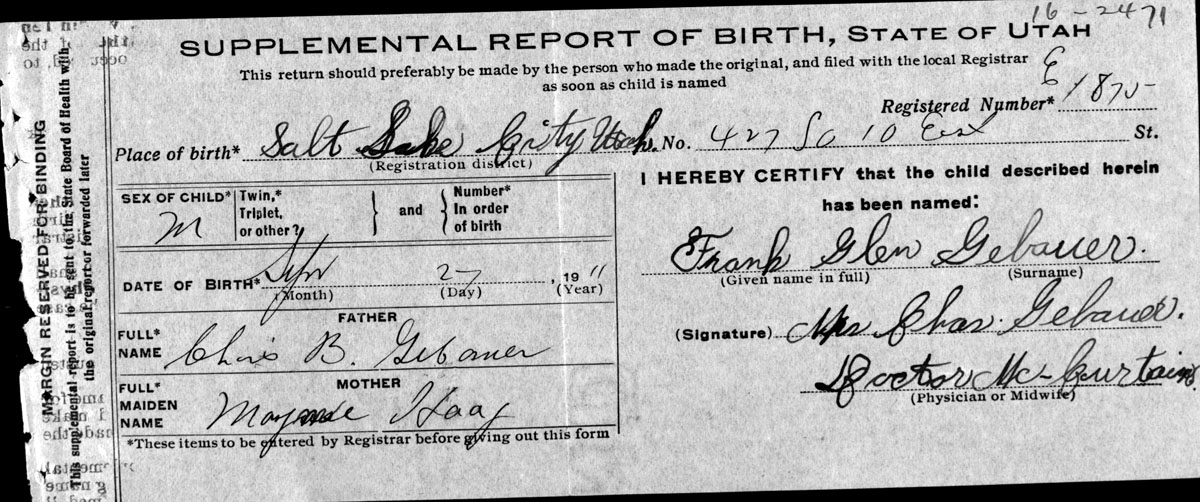 16-2471
SUPPLEMENTAL REPORT OF BIRTH, STATE OF UTAH
This return should preferably be made by the person who made the original, and filed with the local Registrar
as soon as child is named
Registered Number*
Place of birth* Salt Lake City Utah. No. 427 So 10 East St.
(Registration district)
SEX OF CHILD* M
Twin,* Triplet, or other? } and { Number* In order of birth
DATE OF BIRTH* 27, 1911
(Month) (Day) (Year)
FATHER
FULL* NAME B. Gebauer
MOTHER
FULL* MAIDEN NAME Haag
*These items to be entered by Registrar before giving out this form
I HEREBY CERTIFY that the child described herein
has been named:
Frank Glen Gebauer.
(Given name in full) (Surname)
(Signature) Mrs Chas. Gebauer.
Doctor Mc-Curtain
(Physician or Midwife)
MARGIN RESERVED FOR BINDING
This supplemental report is to be sent to the State Board of Health with
the original report or forwarded later